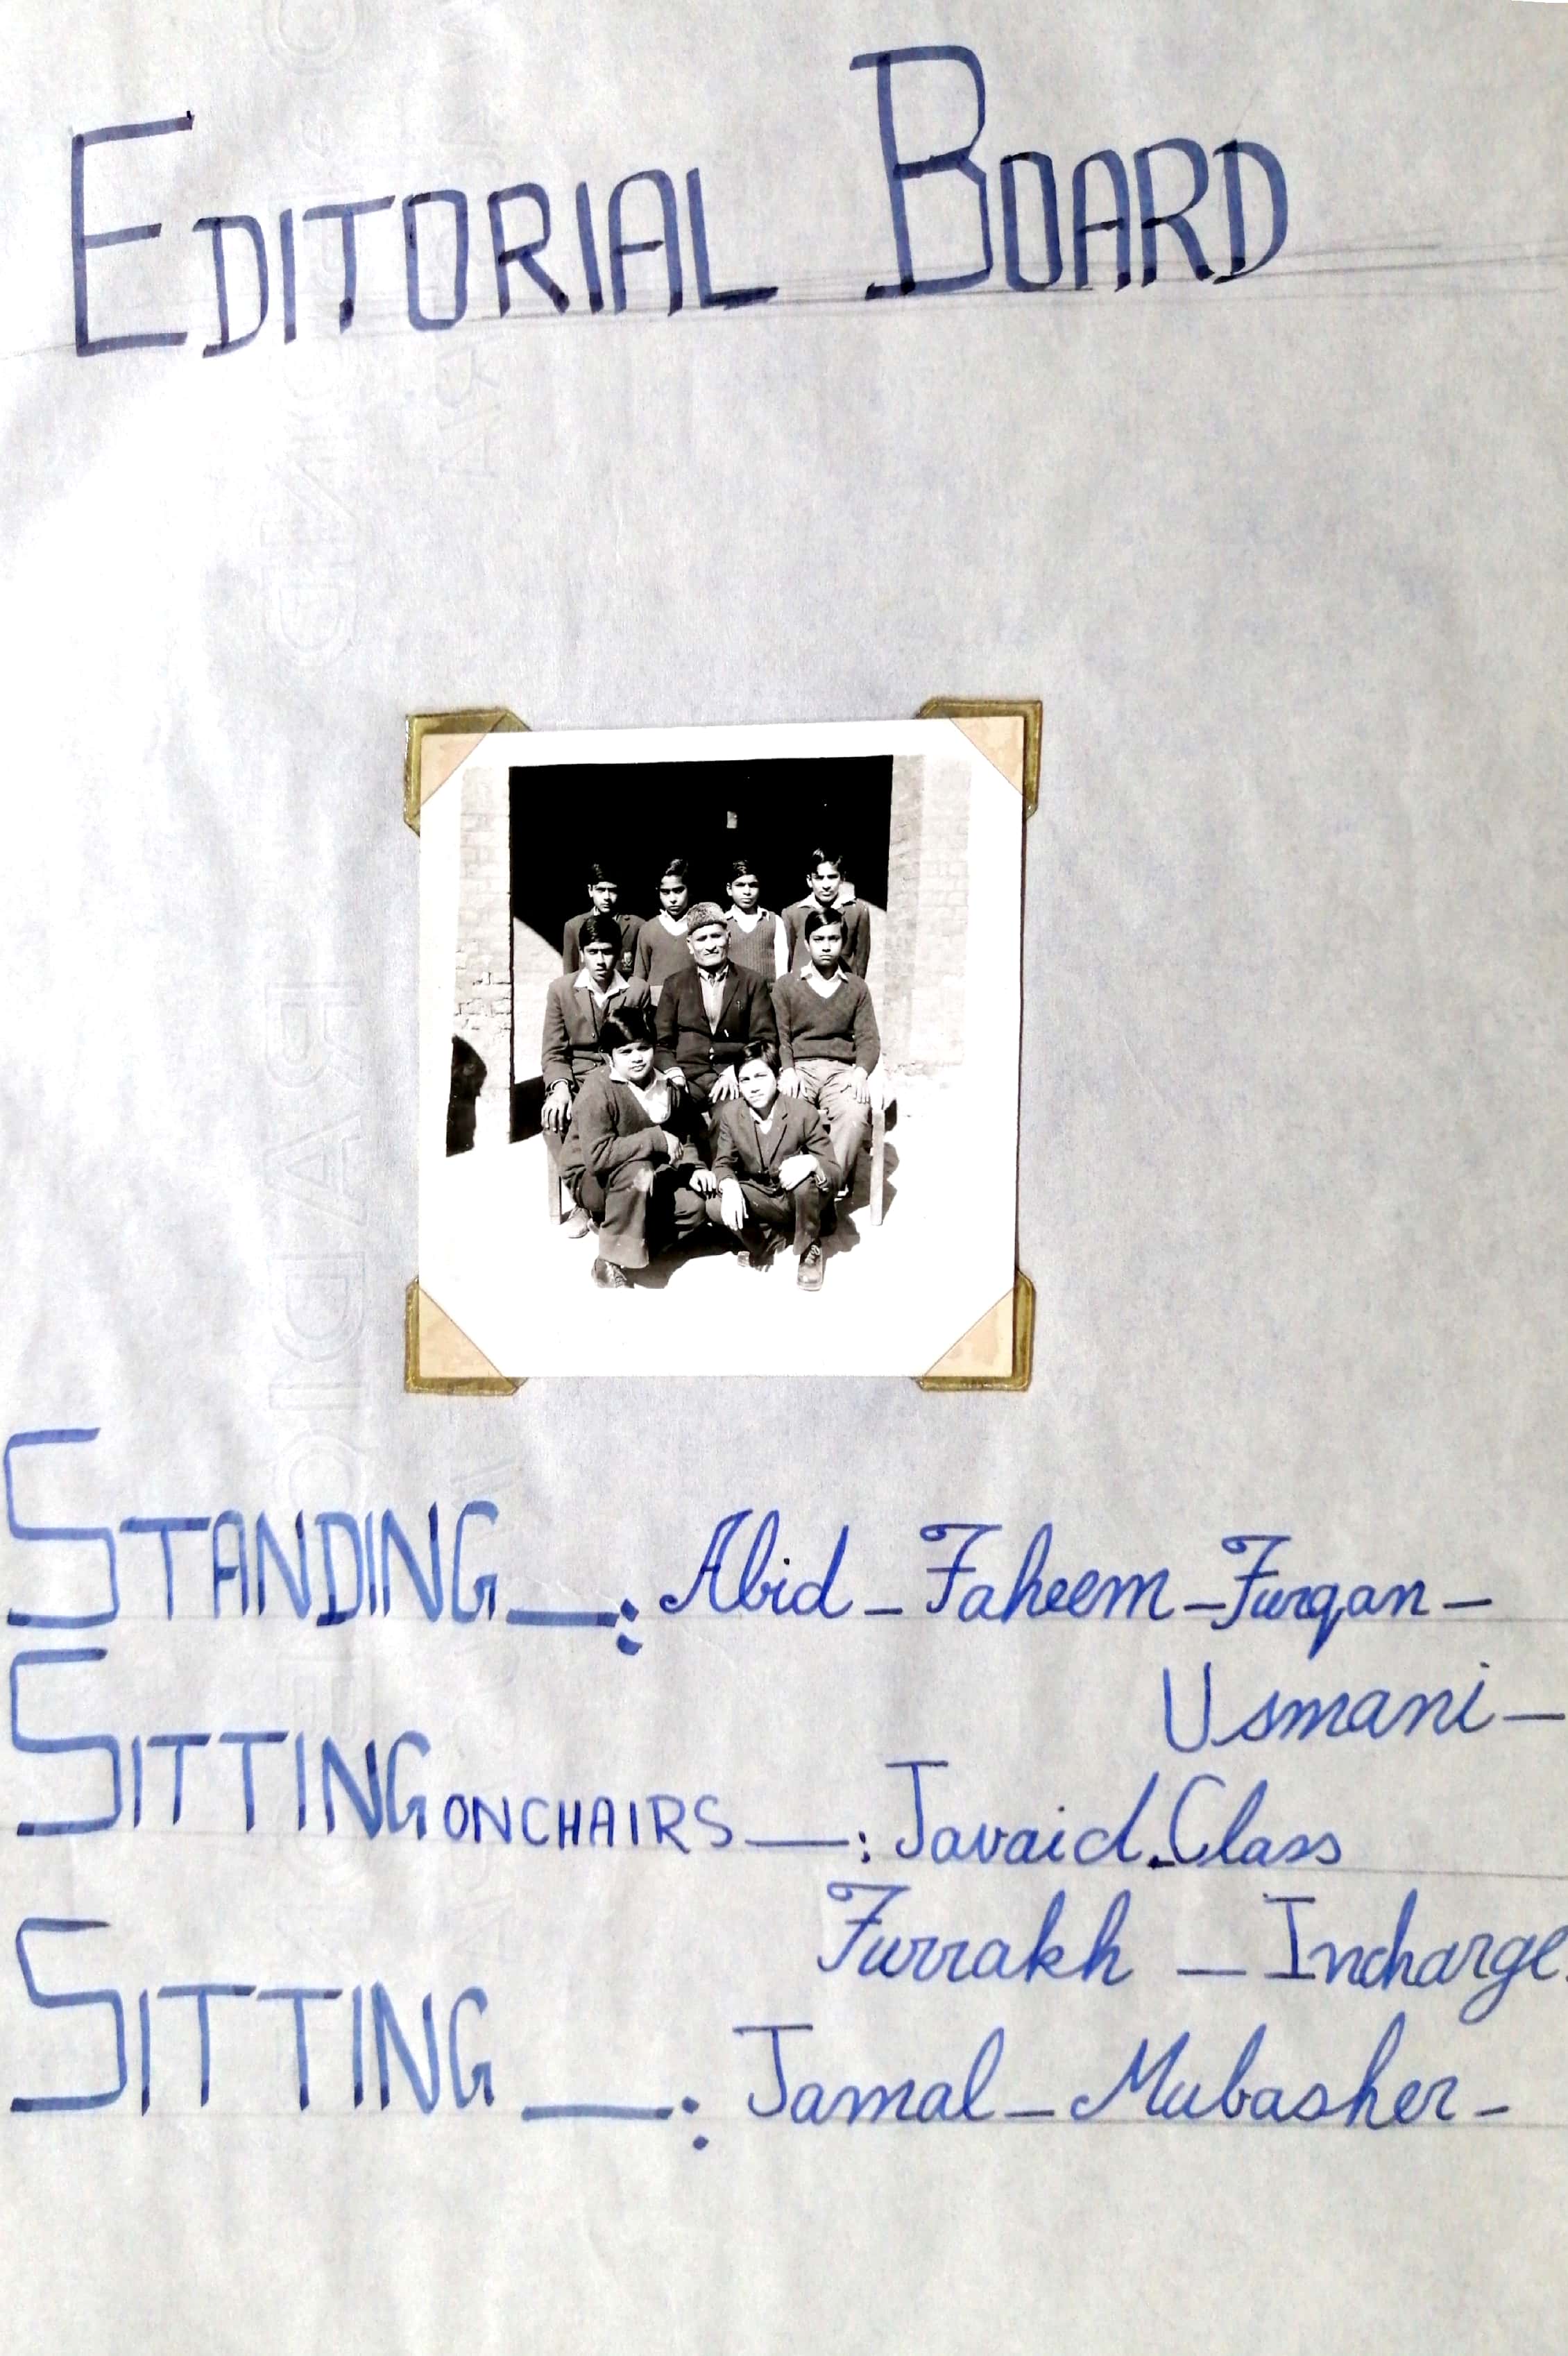 EDITORIAL BOARD
STANDING —: Abid – Faheem – Furqan –
Usmani –
SITTING ON CHAIRS —: Javaid. Class
Furrakh – Incharge.
SITTING —: Jamal – Mubasher –